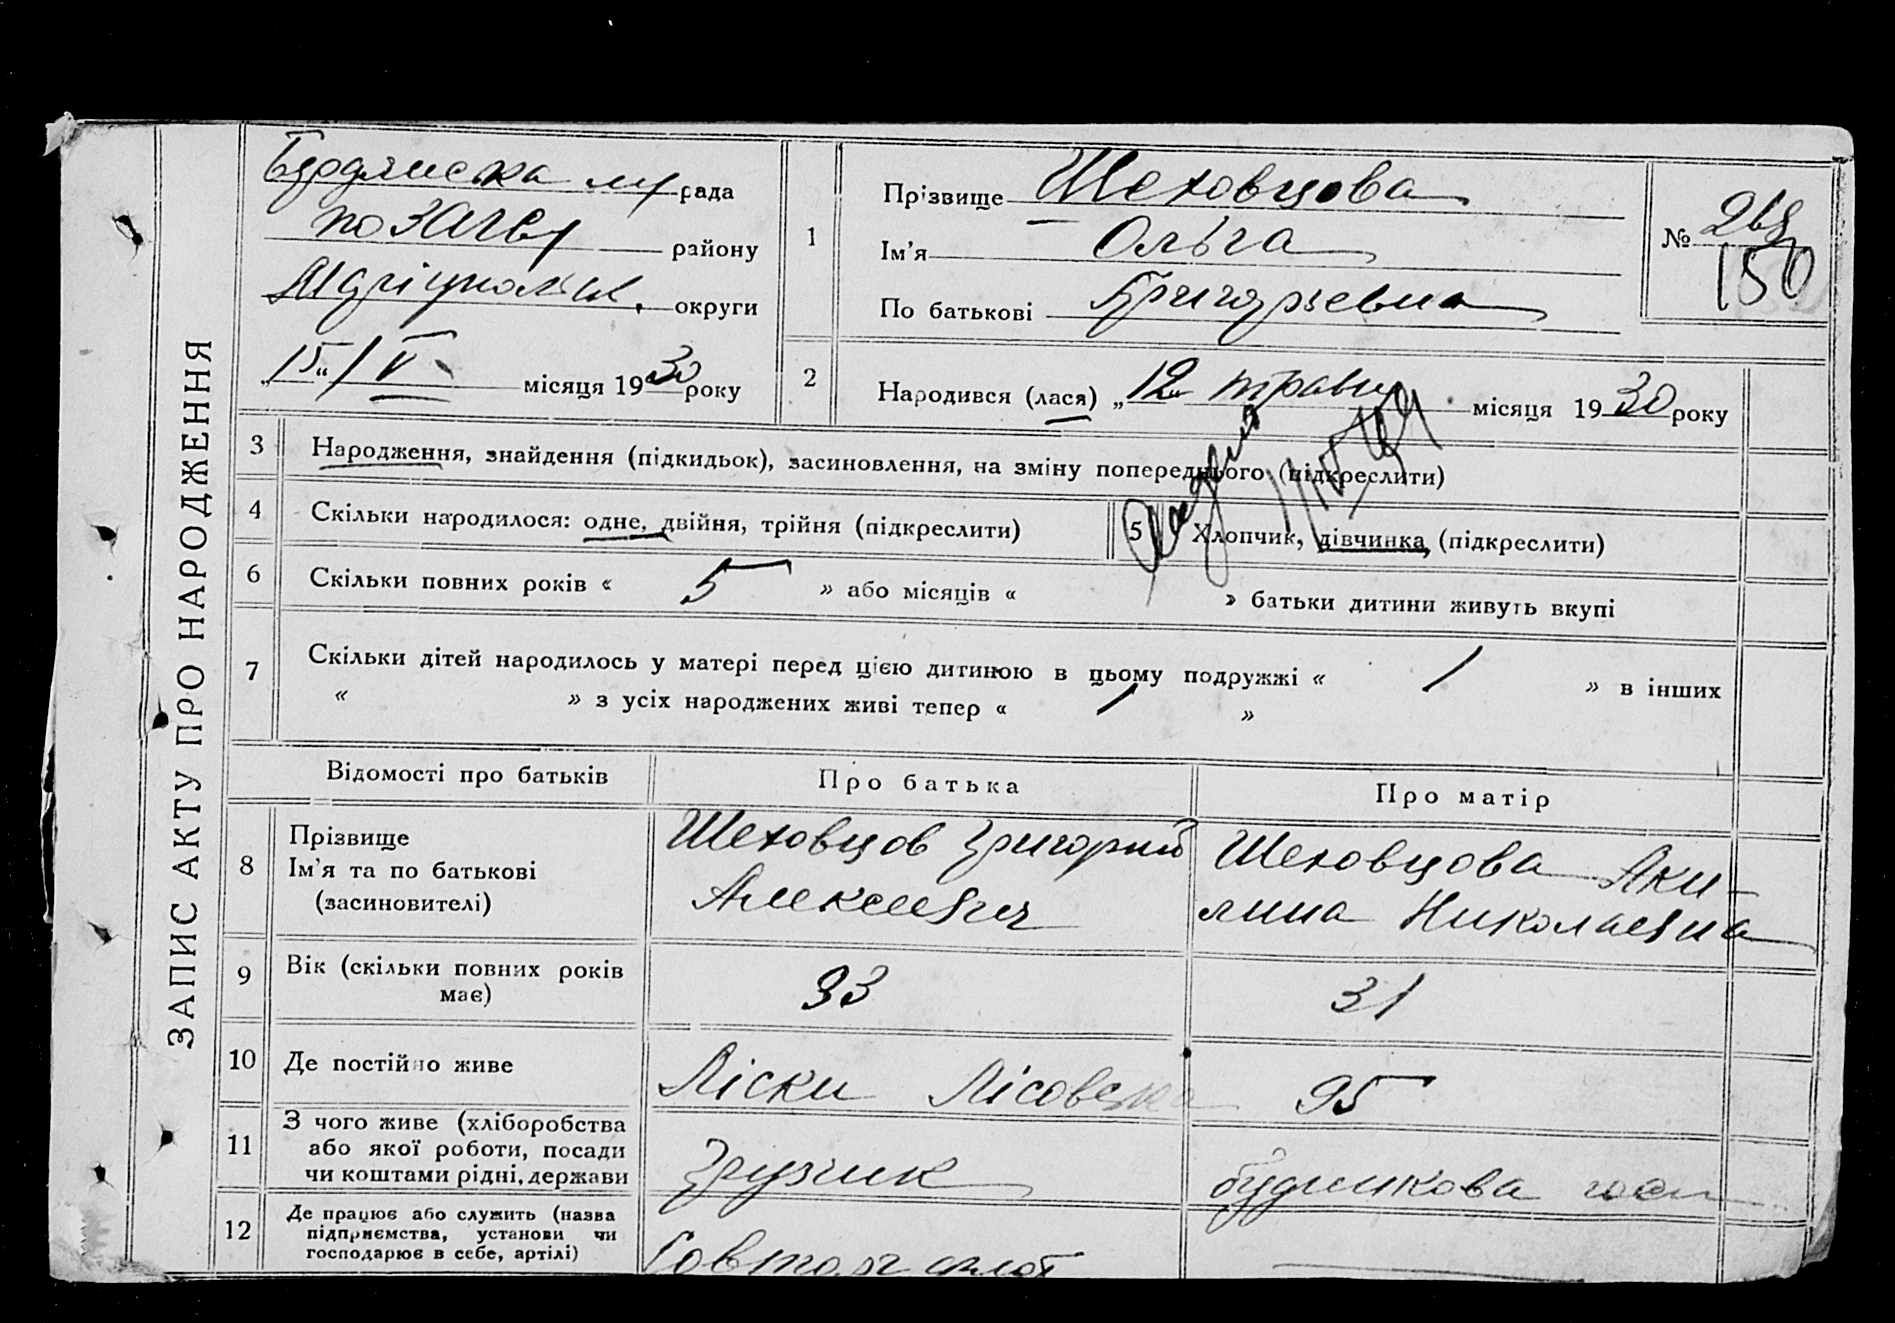 ЗАПИС АКТУ ПРО НАРОДЖЕННЯ
Бердянська м/рада
по ЗАГСу району
Маріупольськ. округи
„15“/V місяця 1930 року
1
Прізвище Шеховцова
Ім’я Ольга
По батькові Григорьевна
№ 268
150
2 Народився (лася) „12 травня місяця 1930 року
3 Народження, знайдення (підкидьок), засиновлення, на зміну попереднього (підкреслити)
4 Скільки народилося: одне, двійня, трійня (підкреслити)
5 Хлопчик, дівчинка (підкреслити)
6 Скільки повних років « 5 » або місяців « » батьки дитини живуть вкупі
7 Скільки дітей народилось у матері перед цією дитиною в цьому подружжі « 1 » в інших
« » з усіх народжених живі тепер « 1 »
Відомості про батьків Про батька Про матір
8 Прізвище
Ім’я та по батькові
(засиновителі)
Шеховцов Григорий
Алексеевич
Шеховцова Аки-
лина Николаевна
9 Вік (скільки повних років
має)
33
31
10 Де постійно живе
Ліски Лісовська 95
11 З чого живе (хліборобства
або якої роботи, посади
чи коштами рідні, держави
Грузчик
будинкова госп
12 Де працює або служить (назва
підприємства, установи чи
господарює в себе, артілі)
Совторгфлот